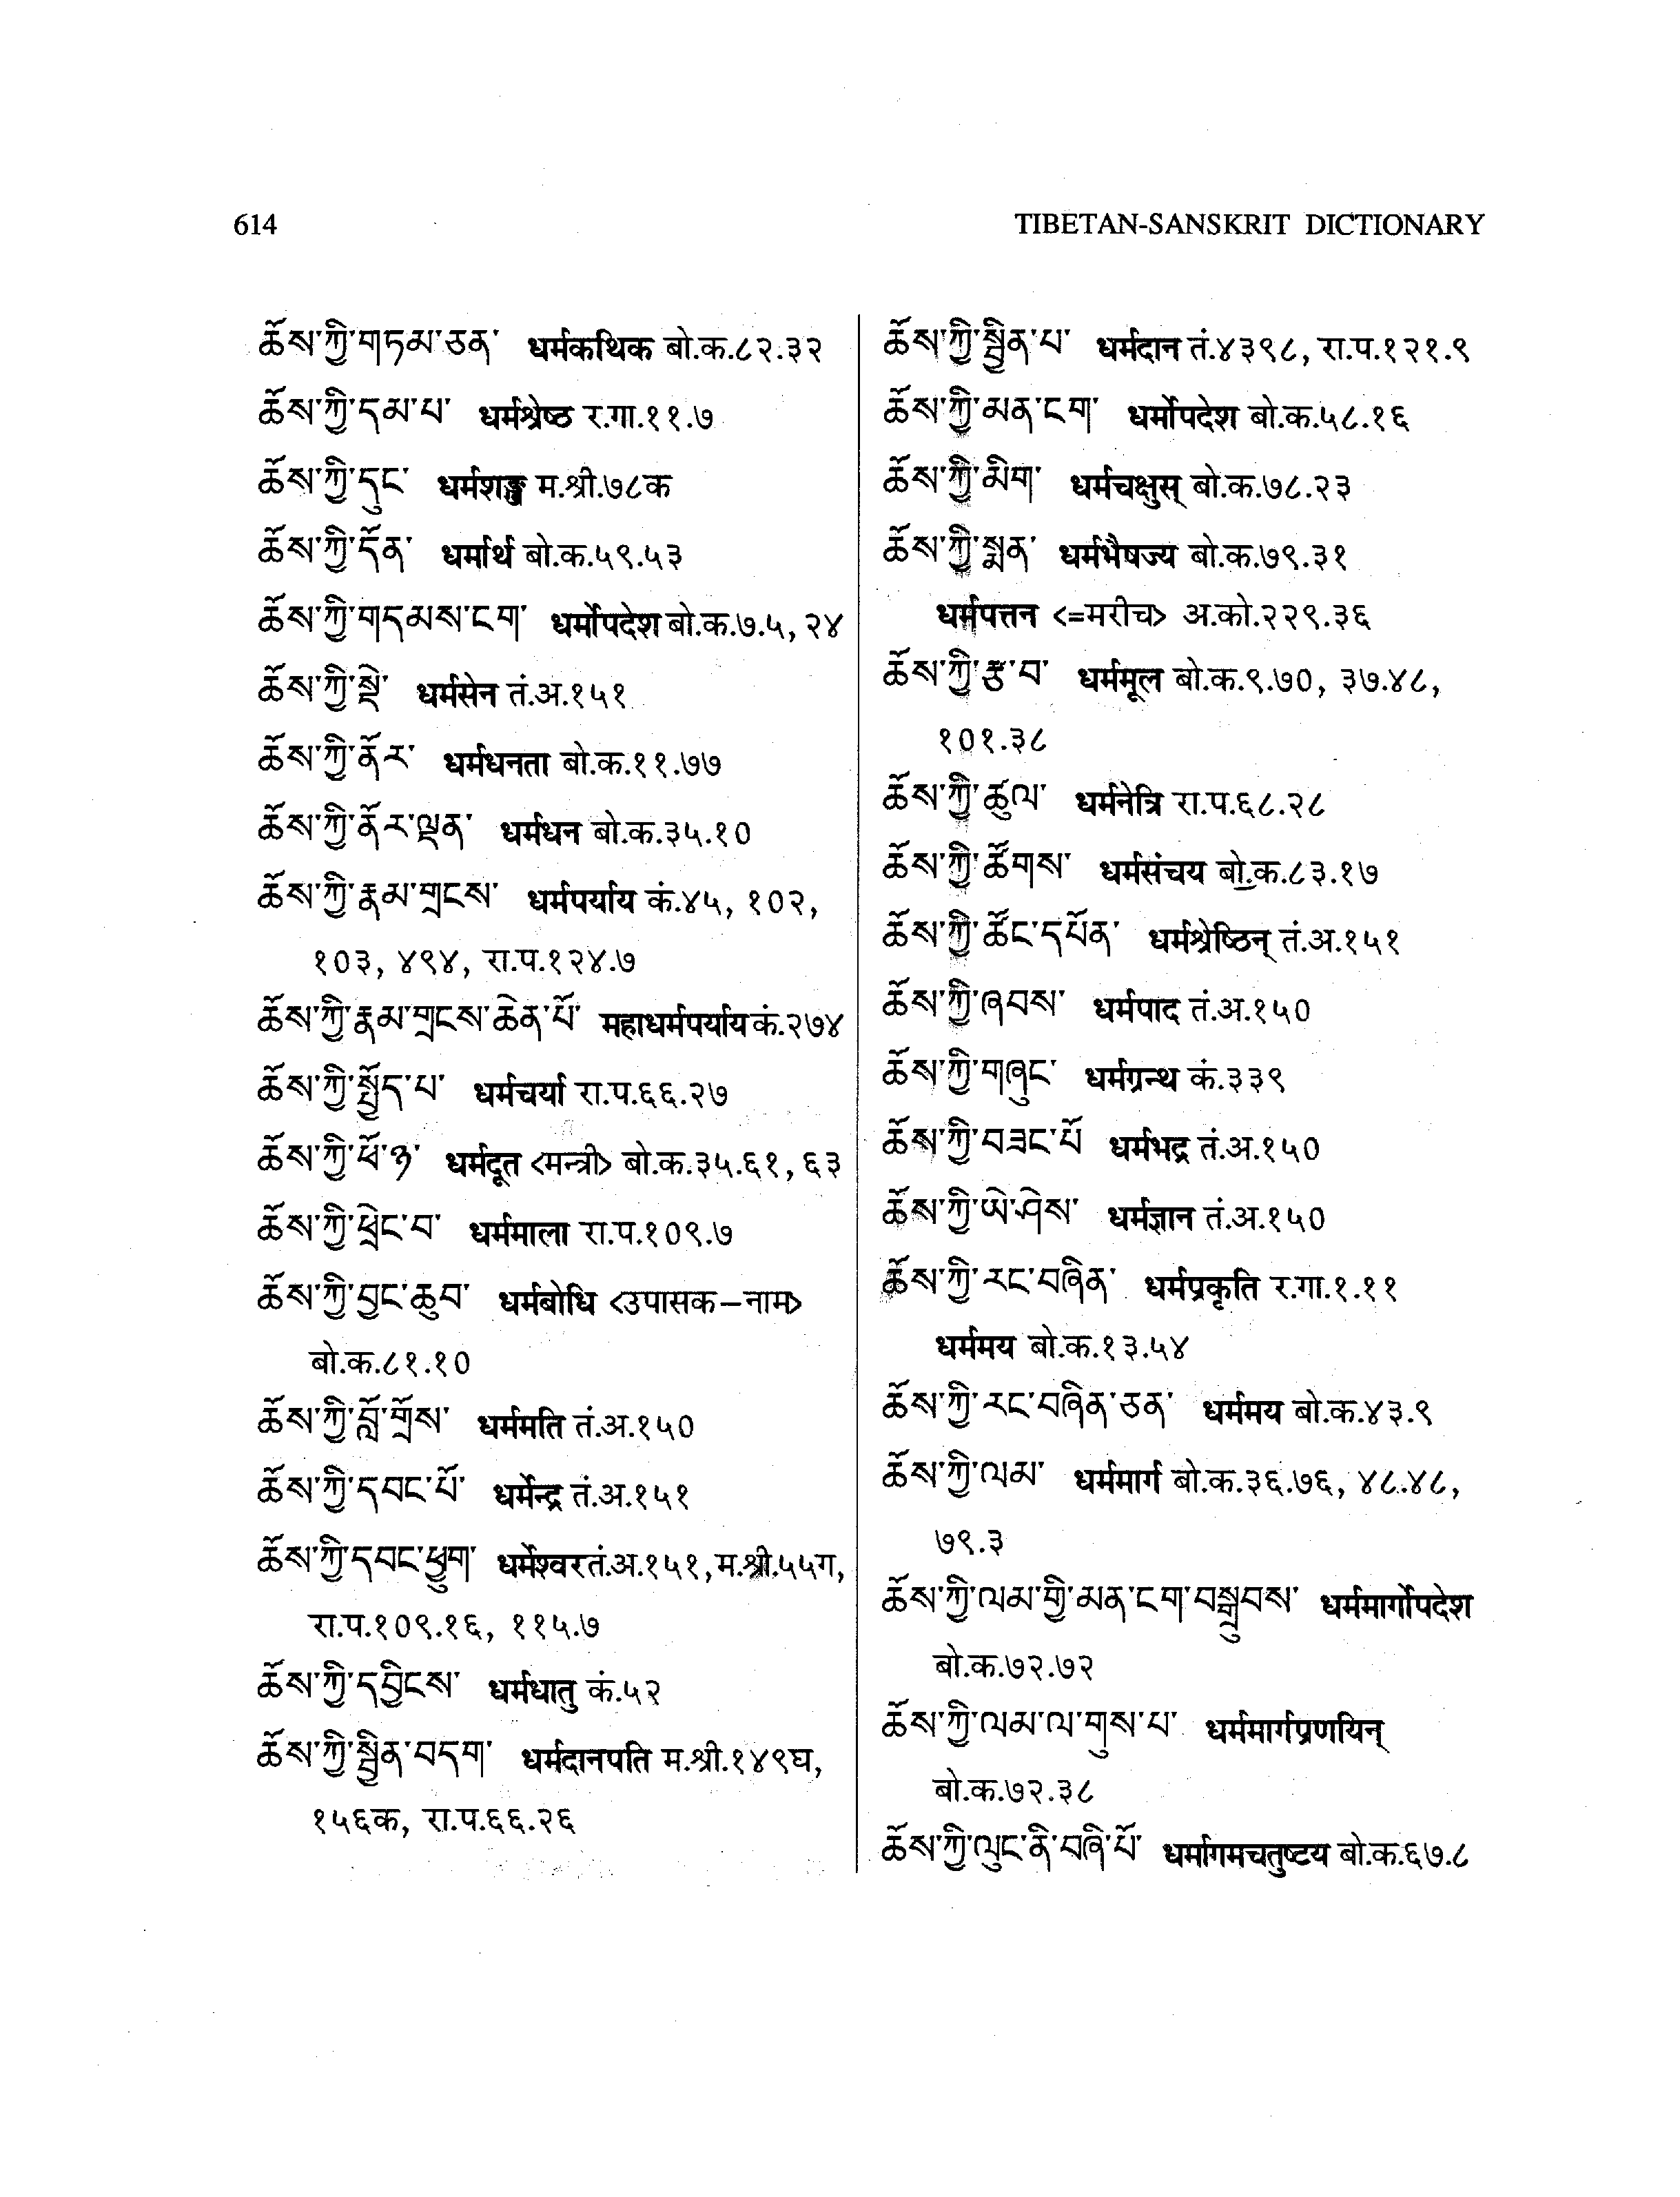 614
TIBETAN-SANSKRIT DICTIONARY
ཆོས་ཀྱི་གཏམ་ཅན་ धर्मकथिक बो.क.८२.३२
ཆོས་ཀྱི་དམ་པ་ धर्मश्रेष्ठ र.गा.११.७
ཆོས་ཀྱི་དུང་ धर्मशङ्ख म.श्री.७८क
ཆོས་ཀྱི་དོན་ धर्मार्थ बो.क.५९.५३
ཆོས་ཀྱི་གདམས་ངག་ धर्मोपदेश बो.क.७.५, २४
ཆོས་ཀྱི་སྡེ་ धर्मसेन तं.अ.१५१
ཆོས་ཀྱི་ནོར་ धर्मधनता बो.क.११.७७
ཆོས་ཀྱི་ནོར་ལྡན་ धर्मधन बो.क.३५.१0
ཆོས་ཀྱི་རྣམ་གྲངས་ धर्मपर्याय कं.४५, १0२,
१0३, ४९४, रा.प.१२४.७
ཆོས་ཀྱི་རྣམ་གྲངས་ཆེན་པོ་ महाधर्मपर्याय कं.२७४
ཆོས་ཀྱི་སྤྱོད་པ་ धर्मचर्या रा.प.६६.२७
ཆོས་ཀྱི་ཕོ་ཉ་ धर्मदूत <मन्त्री> बो.क.३५.६१, ६३
ཆོས་ཀྱི་ཕྲེང་བ་ धर्ममाला रा.प.१0९.७
ཆོས་ཀྱི་བྱང་ཆུབ་ धर्मबोधि <उपासक–नाम>
बो.क.८१.१0
ཆོས་ཀྱི་བློ་གྲོས་ धर्ममति तं.अ.१५0
ཆོས་ཀྱི་དབང་པོ་ धर्मेन्द्र तं.अ.१५१
ཆོས་ཀྱི་དབང་ཕྱུག་ धर्मेश्वर तं.अ.१५१, म.श्री.५५ग,
रा.प.१0९.१६, ११५.७
ཆོས་ཀྱི་དབྱིངས་ धर्मधातु कं.५२
ཆོས་ཀྱི་སྦྱིན་བདག་ धर्मदानपति म.श्री.१४९घ,
१५६क, रा.प.६६.२६
ཆོས་ཀྱི་སྦྱིན་པ་ धर्मदान तं.४३९८, रा.प.१२१.९
ཆོས་ཀྱི་མན་ངག་ धर्मोपदेश बो.क.५८.१६
ཆོས་ཀྱི་མིག་ धर्मचक्षुस् बो.क.७८.२३
ཆོས་ཀྱི་སྨན་ धर्मभैषज्य बो.क.७९.३१
धर्मपत्तन <=मरीच> अ.को.२२९.३६
ཆོས་ཀྱི་རྩ་བ་ धर्ममूल बो.क.९.७0, ३७.४८,
१0१.३८
ཆོས་ཀྱི་ཚུལ་ धर्मनेत्रि रा.प.६८.२८
ཆོས་ཀྱི་ཚོགས་ धर्मसंचय बो.क.८३.१७
ཆོས་ཀྱི་ཚོང་དཔོན་ धर्मश्रेष्ठिन् तं.अ.१५१
ཆོས་ཀྱི་ཞབས་ धर्मपाद तं.अ.१५0
ཆོས་ཀྱི་གཞུང་ धर्मग्रन्थ कं.३३९
ཆོས་ཀྱི་བཟང་པོ་ धर्मभद्र तं.अ.१५0
ཆོས་ཀྱི་ཡེ་ཤེས་ धर्मज्ञान तं.अ.१५0
ཆོས་ཀྱི་རང་བཞིན་ धर्मप्रकृति र.गा.१.११
धर्ममय बो.क.१३.५४
ཆོས་ཀྱི་རང་བཞིན་ཅན་ धर्ममय बो.क.४३.९
ཆོས་ཀྱི་ལམ་ धर्ममार्ग बो.क.३६.७६, ४८.४८,
७९.३
ཆོས་ཀྱི་ལམ་གྱི་མན་ངག་བསྒྲུབས་ धर्ममार्गोपदेश
बो.क.७२.७२
ཆོས་ཀྱི་ལམ་ལ་གུས་པ་ धर्ममार्गप्रणयिन्
बो.क.७२.३८
ཆོས་ཀྱི་ལུང་ནི་བཞི་པོ་ धर्मागमचतुष्टय बो.क.६७.८